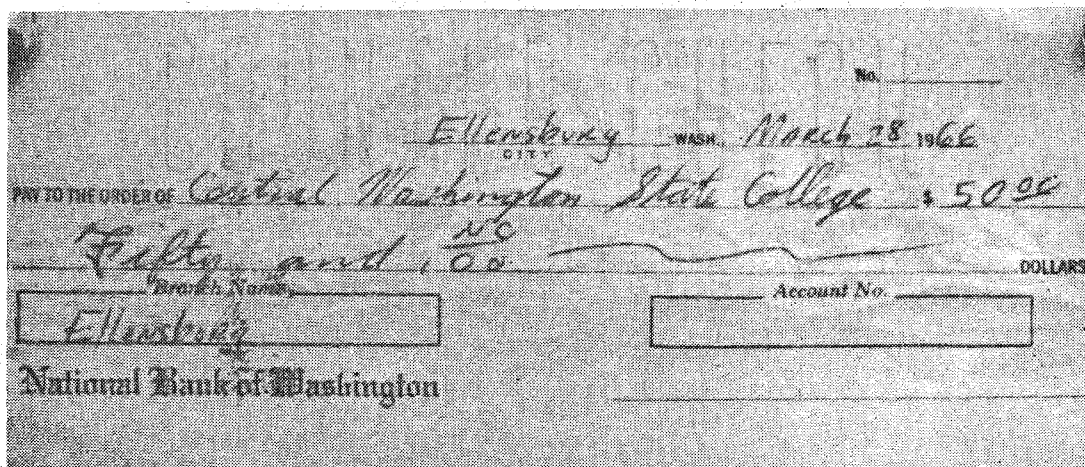 No.
Ellensburg WASH., March 28 1966
CITY
PAY TO THE ORDER OF Central Washington State College $ 50 00
Fifty and no/00 DOLLARS
Branch Name Account No.
Ellensburg
National Bank of Washington